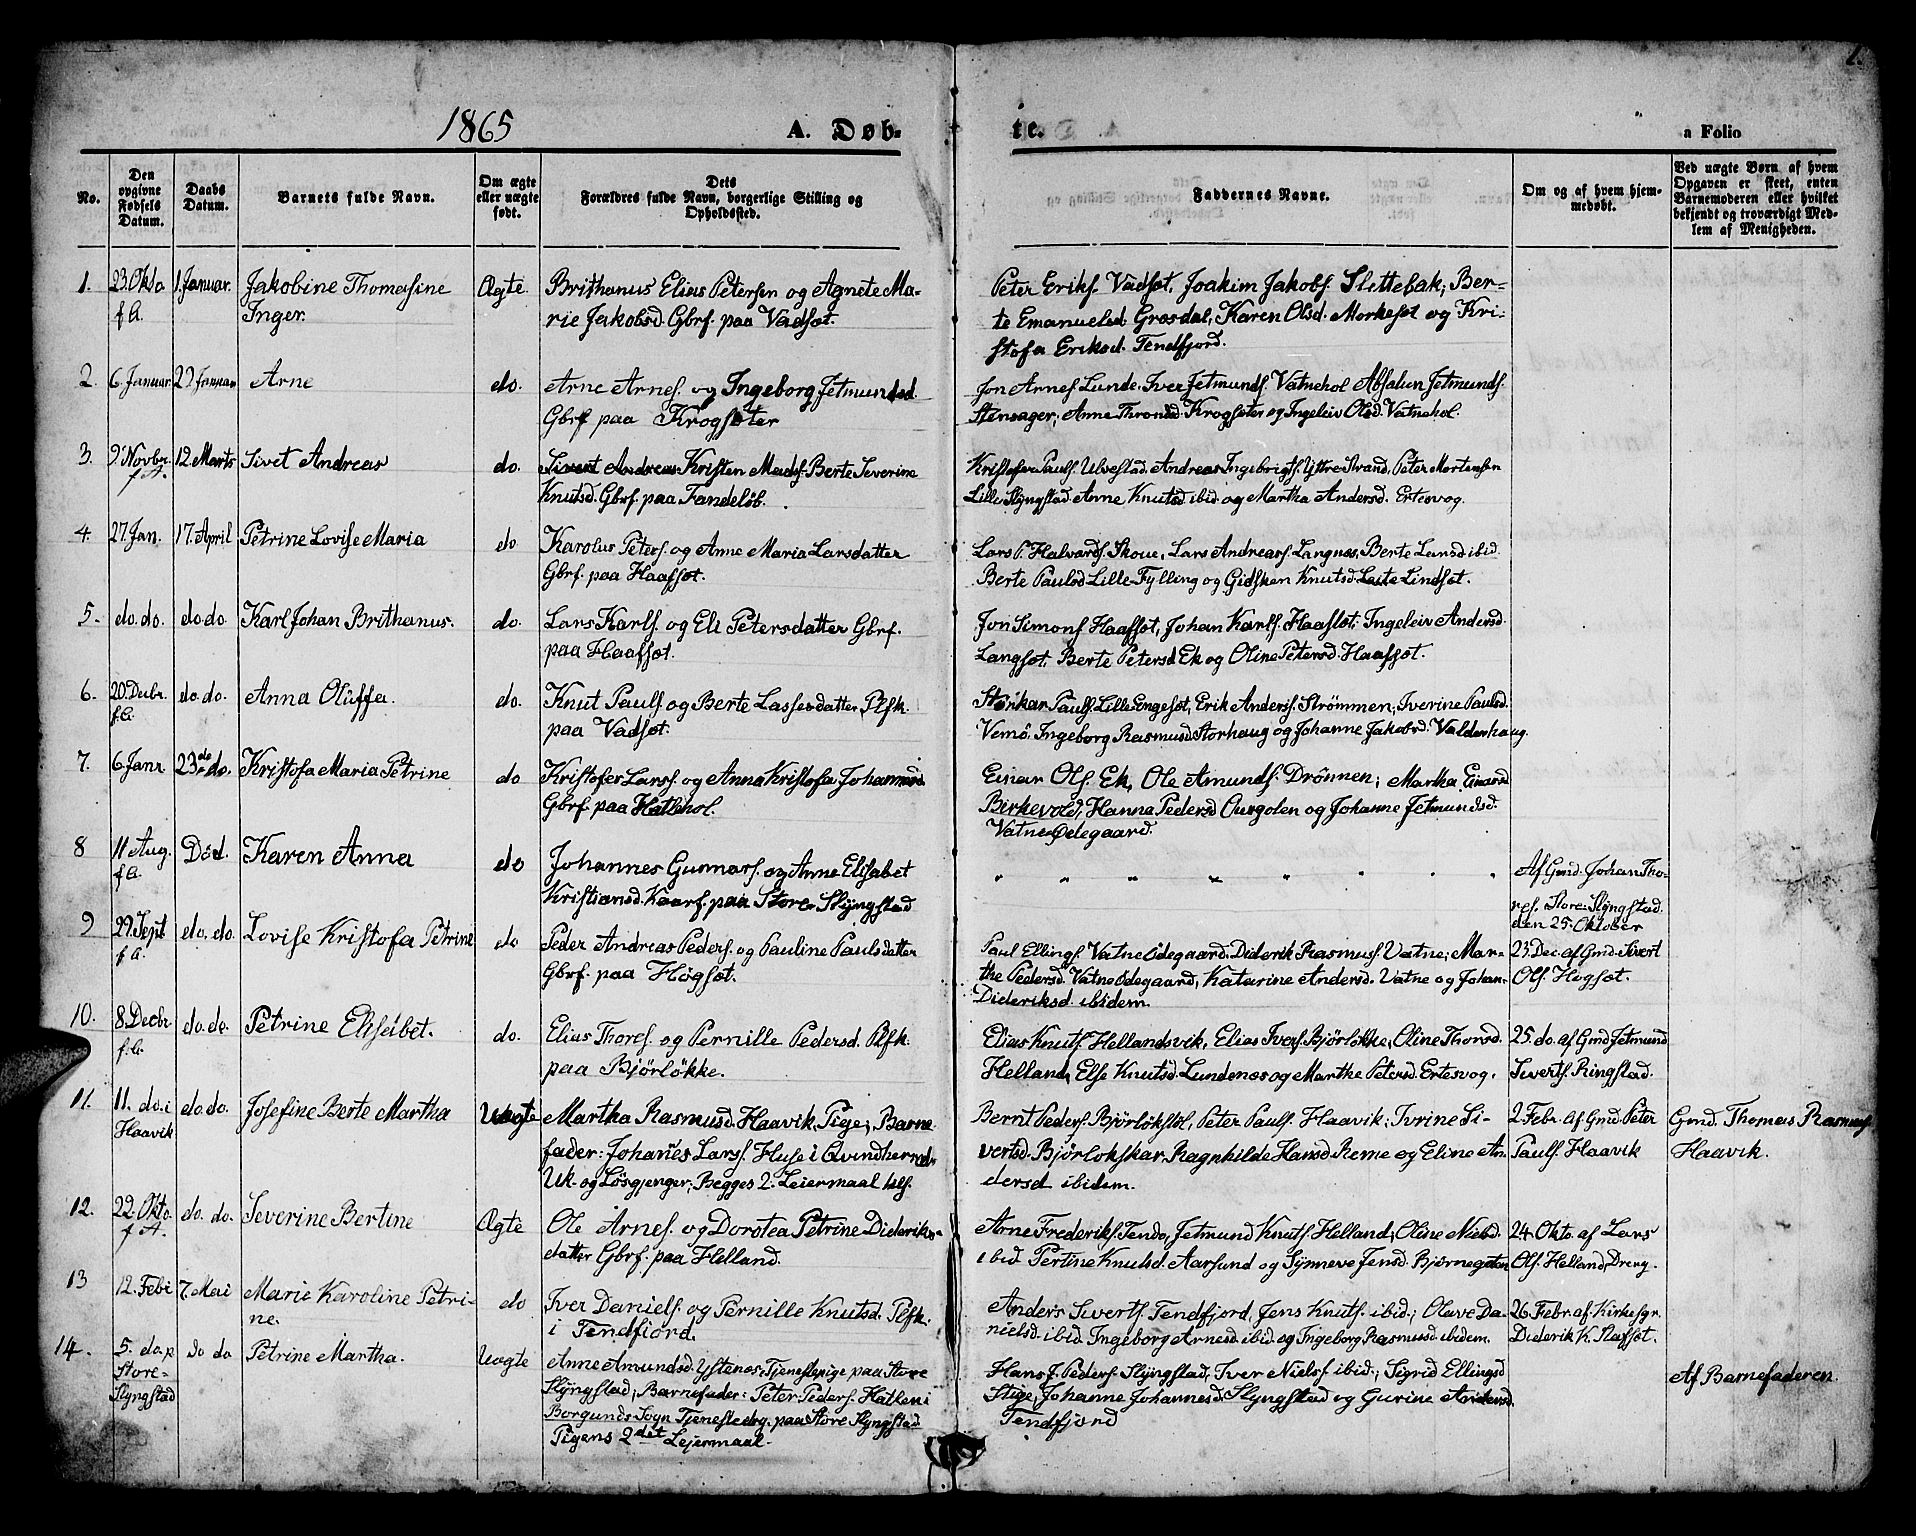 1865
A. Døb-
te.
a Folio
No.
Den opgivne Fødsels Datum.
Daabs Datum.
Barnets fulde Navn.
Om ægte eller uægte født.
Dets Forældres fulde Navn, borgerlige Stilling og Opholdssted.
Faddernes Navne.
Om og af hvem hjemmedøbt.
Ved uægte Børn af hvem Opgaven er skeet, enten Barnemoderen eller hvilket bekjendt og troværdigt Medlem af Menigheden.
1. 23. Okto f.A. 1. Januar. Jakobine Thomasine Inger. Ægte
Brithanus Elias Petersen og Agnete Ma-
rie Jakobsd. Gbrf. paa Vadsøt.
Peter Eriks. Vadsøt, Joakim Jakobs. Slettebak, Ber-
te Emanuelsd. Grøsdal, Karen Olsd. Morkesøt og Kri-
stofa Eriksd. Tendfjord.
2. 6. Januar. 29 Januar Arne do.
Arne Arnes. og Ingeborg Jetmundsd.
Gbrf paa Krogsøter
Jon Arnes Lunde, Iver Jetmunds. Vatnehol Absalun Jetmunds.
Stensager; Anne Thronsd. Krogsøter og Ingeleiv Olsd. Vatnehol.
3. 9. Novbr. f.A. 12 Marts Sivet Andreas do.
Sivert Andreas Kristen Mads. Berte Severine
Knutsd. Gbrf. paa Fandeløb.
Kristofer Pauls. Ulvestad. Andreas Ingebrigts. Yttre Strand, Peter Mortensen
Lille Slyngstad. Anne Knutsd ibid og Martha Andersd. Ertesvog
4. 27. Jan. 17. April Petrine Lovise Maria do
Karolus Peters. og Anne Maria Larsdatter
Gbrf. paa Haafsøt.
Lars P. Halvards. Skoue, Lars Andreas. Langnæs, Berte Larsd ibid.
Berte Paulsd Lille-Fylling og Gidsken Knutsd. Leite Lindsøt.
5. do. do. do do. Karl Johan Brithanus. do.
Lars Karls. og Eli Petersdatter Gbrf.
paa Haafsøt.
Jon Simons Haafsøt, Johan Karls. Haafsøt. Ingeleiv Andersd.
Langsøt, Berte Petersd Ek og Oline Petersd. Haafsøt.
6. 20. Decbr. f.A. do. do. Anna Oluffa. do.
Knut Pauls. og Berte Lassesdatter, Plfk.
paa Vadsøt.
Storkar Pauls. Lille Engesøt, Erik Anderss. Strömmen; Iverine Paulsd.
Vemö. Ingeborg Rasmusd Storhaug og Johanne Jakobsd. Valderhaug.
7. 6. Janr 23de do. Kristofa Maria Petrine do
Kristofer Larss. og Anna Kristofa Johannesd
Gbrf. paa Hatlehol.
Einar Ols. Ek, Ole Amunds. Drönnen; Martha Einarsd
Birkevold, Hanna Pedersd Ourgolen og Johanne Jetmundsd.
Vatne Ødegaard.
8 11 Aug. f.A. Död. Karen Anna do
Johannes Gunnars. og Anne Elisabet
Kristiansd. Kaarf. paa Store-Slyngstad
" " " " " " "
Af Gmd. Johan Tho-
res. Store-Slyngstad.
den 25. Oktober
9 29. Sept f.A. do. do. Lovise Kristofa Petrine do
Peder Andreas Peders. og Pauline Paulsdatter
Gbrf. paa Høgsøt.
Paul Ellings. Vatne Ödegaard, Diderik Rasmus. Vatne; Mar-
the Pedersd. Vatne Ødegaard, Katarine Andersd. Vatne og Johan-
Dideriksd. ibidem.
23. Dec. af Gmd. Sivert
Ols. Høgsøt.
10. 8. Decbr f.A. do. do. Petrine Eliseibet. do.
Elias Thores. og Pernille Pedersd. Plfk.
paa Björlökke.
Elias Knuts. Hellandsvik, Elias Ivers Björlökke, Oline Thorsd.
Helland, Else Knutsd. Lundenæs og Marthe Petersd. Ertesvog.
25. do. af Gmd Jetmund
Siverts. Ringstad.
11. 11. do. i Haavik do. do. Josefine Berte Martha Uægte
Martha Rasmusd. Haavik, Pige; Barne
fader: Johanēs Lars. Huse i Qvindherred.
Uk. og Lösgjenger; Begges 2. Leiermaal hls.
Bernt Peders. Björløkstøl, Peter Pauls. Haavik; Ivrine Si-
vertsd. Björlokskar. Ragnhilde Hansd. Reme og Eline An
dersd ibidem.
2 Febr. af Gmd Peter
Pauls. Haavik
Gmd. Thomas Rasmus.
Haavik.
12. 22. Okto. f.A. do. do. Severine Bertine Ægte
Ole Arnes. og Dorotea Petrine Dideriks-
datter Gbrf. paa Helland.
Arne Frederiks. Tendø, Jetmund Knuts. Helland; Oline Nielsd.
ibid Pertine Knutsd. Aarsund og Synneve Jensd. Björnegaten
24. Okto. af Lars
Ols. Helland, Dreng.
13 12. Febr 7. Mai Marie Karoline Petri-
ne. do
Iver Daniels. og Pernille Knutsd. Plfk.
i Tendfjord.
Anders Siverts. Tendfjord, Jens Knuts. ibid.; Olave Da-
nielsd. ibid. Ingeborg Arnesd. ibid og Ingeborg Rasmusd. ibidem.
26. Febr. af. Kirkesgr.
Diderik K. Slafsøt.
14. 5. do. p Store-Slyngstad do do Petrine Martha. Uægte
Anne Amundsd. Ystenes, Tjenestepige paa Store
Slyngstad; Barnefader: Peter Peders. Hatlen i
Borgunds Sogn Tjenestedrg. paa Store Slyngstad
Pigens 2det Lejermaal.
Hans J. Peders. Slyngstad, Iver Niels. ibid.; Sigrid Ellingsd
Stige, Johanne Johannesd. Slyngstad og Gurine Andersd.
Tendfjord
Af Barnefaderen.